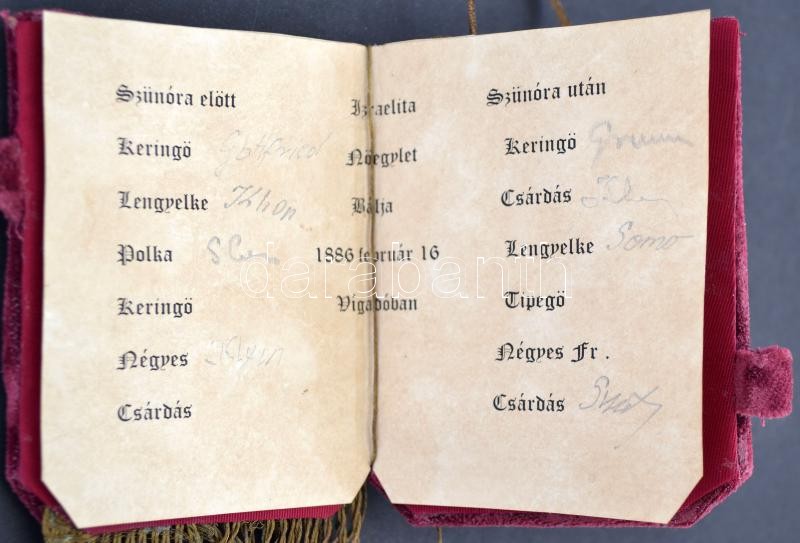 Szünóra elött
Keringö Gottfried
Lengyelke Khon
Polka
Keringö
Négyes Klein
Csárdás
Izraelita
Nöegylet
Bálja
1886 február 16
Vigadoban
Szünóra után
Keringö
Csárdás
Lengyelke Somo
Tipegö
Négyes Fr.
Csárdás
darabanth